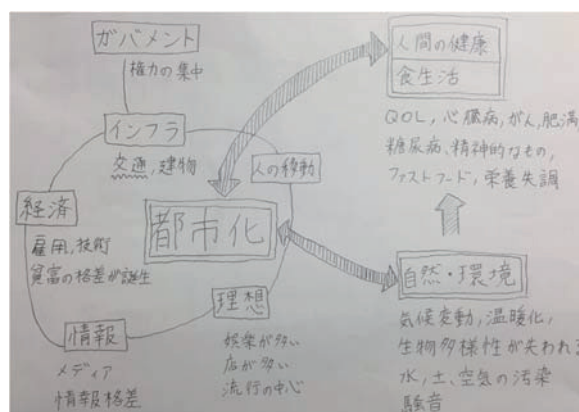 ガバメント
権力の集中
インフラ
交通,建物
人の移動
経済
雇用,技術
貧富の格差が誕生
都市化
理想
娯楽が多い
店が多い
流行の中心
情報
メディア
情報格差
人間の健康
食生活
QOL,心臓病,がん,肥満
糖尿病、精神的なもの,
ファストフード,栄養失調
自然・環境
気候変動,温暖化,
生物多様性が失われる
水,土、空気の汚染
騒音